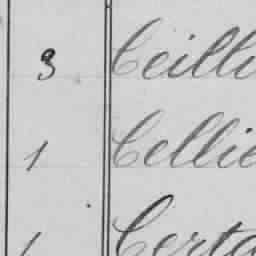 3 Ceilli
1 Cellie
1 Certa